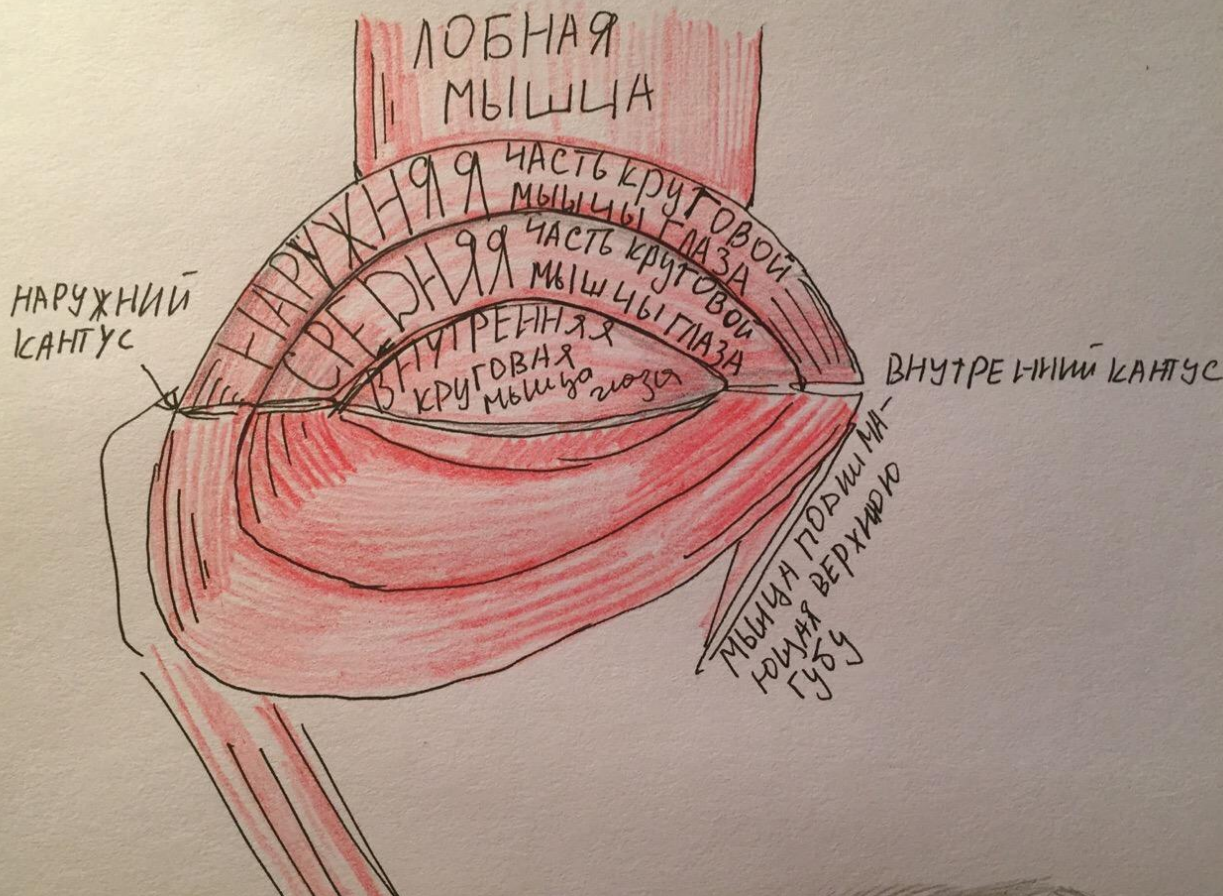 ЛОБНАЯ
МЫШЦА
НАРУЖНЯЯ ЧАСТЬ КРУГОВОЙ
МЫШЦЫ ГЛАЗА
СРЕДНЯЯ ЧАСТЬ КРУГОВОЙ
МЫШЦЫ ГЛАЗА
ВНУТРЕННЯЯ
КРУГОВАЯ
мышца глаза
НАРУЖНИЙ
КАНТУС
ВНУТРЕННИЙ КАНТУС
МЫШЦА ПОДНИМА-
ЮЩАЯ ВЕРХНЮЮ
ГУБУ